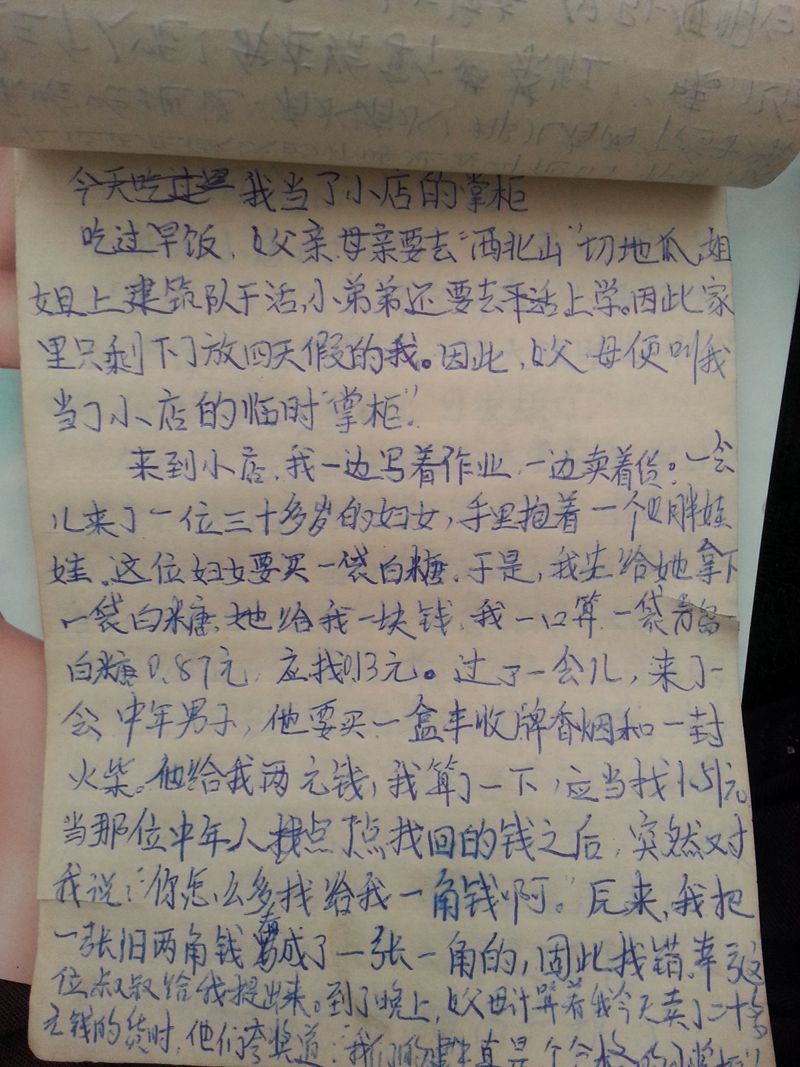 今天吃过早 我当了小店的掌柜
吃过早饭，父亲、母亲要去"西北山"切地瓜，姐
姐上建筑队干活，小弟弟还要去上学。因此家
里只剩下了放四天假的我。因此，父母便叫我
当了小店的临时"掌柜"。
来到小店，我一边写着作业，一边卖着货。一会
儿来了一位三十多岁的妇女，手里抱着一个胖娃
娃。这位妇女要买一袋白糖。于是，我先给她拿下
一袋白糖，她给我一块钱，我一口算，一袋
白糖0.87元，应找0.13元。过了一会儿，来了一
会中年男子，他要买一盒丰收牌香烟和一封
火柴。他给我两元钱，我算了一下，应当找1.51元。
当那位中年人点了点找回的钱之后，突然又对
我说："你怎么多找给我一角钱啊。"后来，我把
一张旧两角钱当成了一张一角的，因此找错，幸亏这
位叔叔给我提出来。到了晚上，父母计算着我今天卖了二十多
元钱的货时，他们夸奖道："我们的 真是个合格的小掌柜！